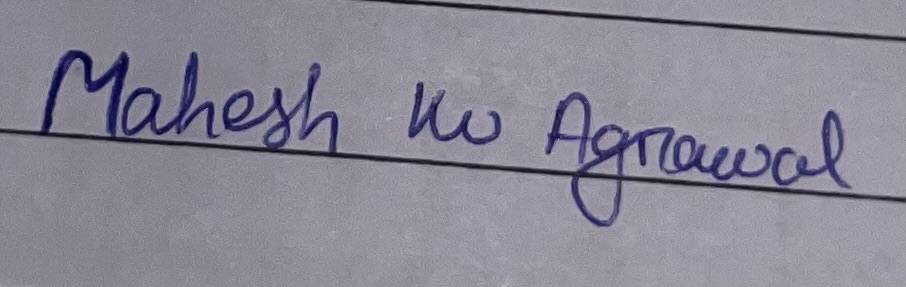 Mahesh Ku Agrawal